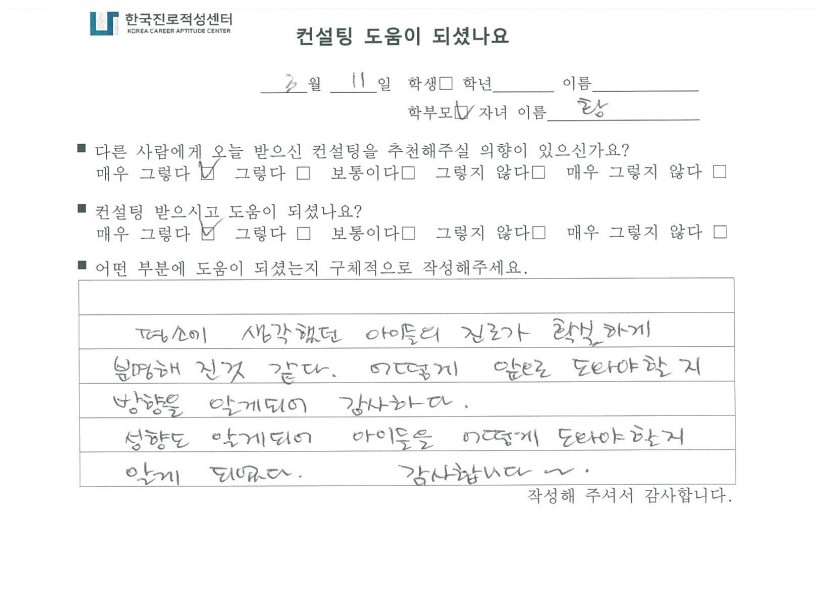 한국진로적성센터
KOREA CAREER APTITUDE CENTER
컨설팅 도움이 되셨나요
3월 11일 학생□ 학년 이름
학부모☑ 자녀 이름 황
■ 다른 사람에게 오늘 받으신 컨설팅을 추천해주실 의향이 있으신가요?
매우 그렇다 ☑ 그렇다 □ 보통이다□ 그렇지 않다□ 매우 그렇지 않다 □
■ 컨설팅 받으시고 도움이 되셨나요?
매우 그렇다 ☑ 그렇다 □ 보통이다□ 그렇지 않다□ 매우 그렇지 않다 □
■ 어떤 부분에 도움이 되셨는지 구체적으로 작성해주세요.
평소에 생각했던 아이들의 진로가 확실하게
분명해 진것 같다. 어떻게 앞으로 도와야할지
방향을 알게되어 감사하다.
성향도 알게되어 아이들을 어떻게 도와야할지
알게 되었다. 감사합니다~.
작성해 주셔서 감사합니다.